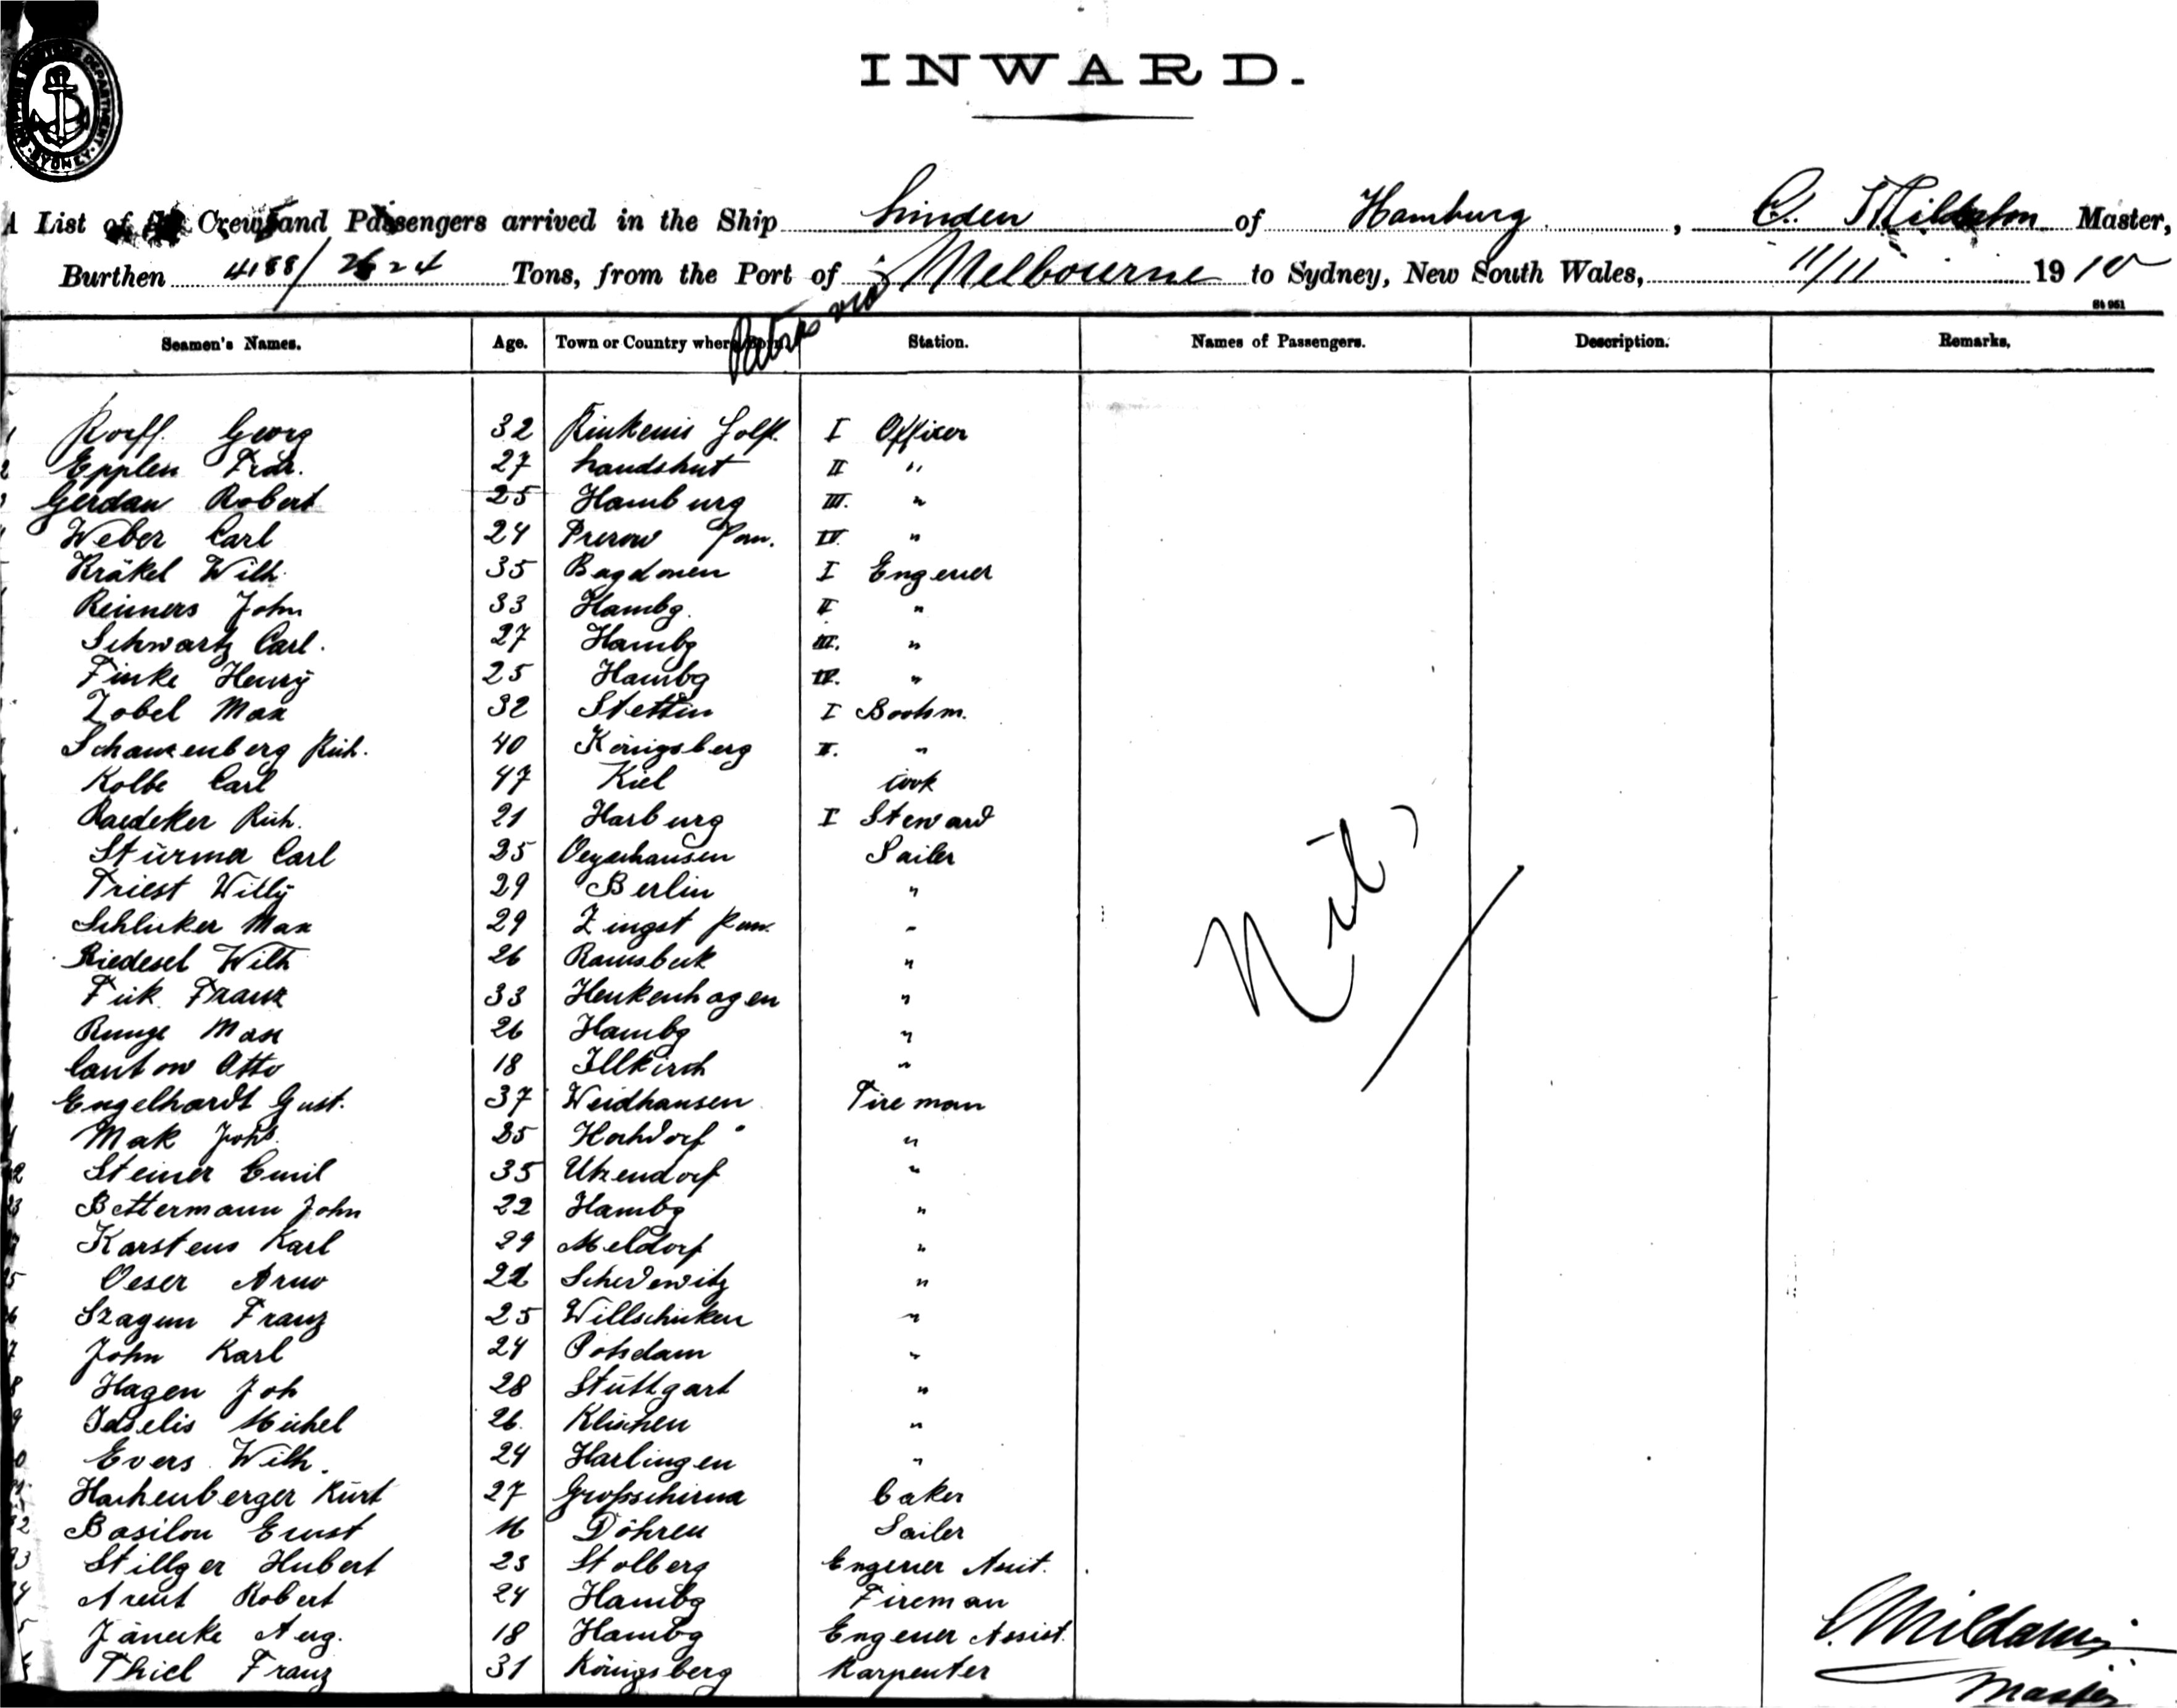 SHIPPING MASTER'S DEPARTMENT SYDNEY
INWARD.
A List of the Crew and Passengers arrived in the Ship Linden of Hamburg, C. Master,
Burthen 4188/2624 Tons, from the Port of Melbourne to Sydney, New South Wales, 11/11 1910
via
St 951
Seamen's Names. Age. Town or Country where Born. Station. Names of Passengers. Description. Remarks.
Korff. Georg 32 Rinkenis Holst. I Officer
2 Epplen Frdr. 27 Landshut II "
Gerdau Robert 25 Hamburg III. "
Weber Carl 24 Prerow Pom. IV. "
Kräkel Wilh. 35 Bagdonen I Engener
Reimers John 33 Hambg. II "
Schwartz Carl. 27 Hambg III. "
Finke Henry 25 Hambg IV. "
Zobel Max 32 Stettin I Bootsm.
Schauzenberg Rich. 40 Königsberg II. "
Kolbe Carl 47 Kiel Cook
Raedeker Rich. 21 Harburg I Steward
Stürmer Carl 25 Oeynhausen Sailer
Triest Willy 29 Berlin "
Schlicker Max 29 Zingst Pom. "
Riedesel Wilh 26 Ramsbeck "
Fick Franz 33 Henkenhagen "
Runge Max 26 Hambg "
Cantow Otto 18 Illkirch "
Engelhardt Gust. 37 Weidhausen Fireman
Mak Johs. 25 Hochdorf "
22 Steiner Emil 35 Utzendorf "
23 Bettermann John 22 Hambg "
Karstens Karl 29 Meldorf "
5 Oeser Arno 22 Schedewitz "
6 Szagun Franz 25 Willschicken "
7 John Karl 24 Potsdam "
8 Hagen Joh 28 Stuttgart "
9 Michel 26. Klischen "
0 Evers Wilh. 24 Harlingen "
Hachenberger Kurt 27 Grossschirma Baker
2 Basilon Ernst 16 Döhren Sailer
3 Stillger Hubert 23 Stolberg Engener Assit.
4 Arent Robert 24 Hambg Fireman
5 Jänecke Aug. 18 Hambg Engener Assist.
Thiel Franz 31 Königsberg Karpenter
Nil
Master